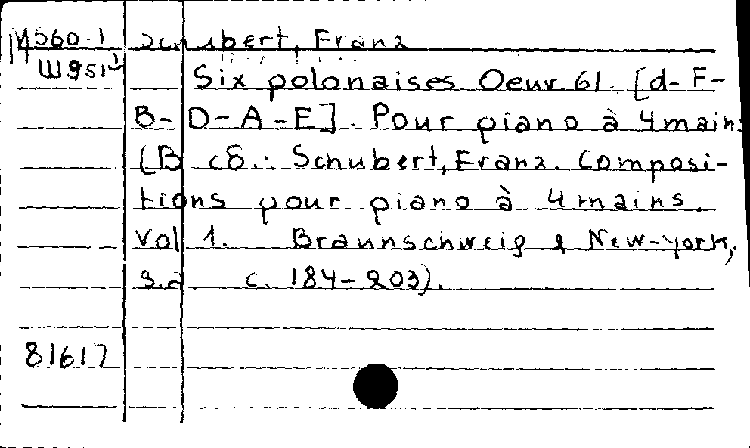 М560-1 Schubert, Franz
Ш951
Six polonaises Oeuv 61. [d-F-
B-D-A-E]. Pour piano à 4 mains
(В сб.: Schubert, Franz. Composi-
tions pour piano à 4 mains.
Vol 1. Braunschweig & New-york,
s.a. c. 184-203).
81617